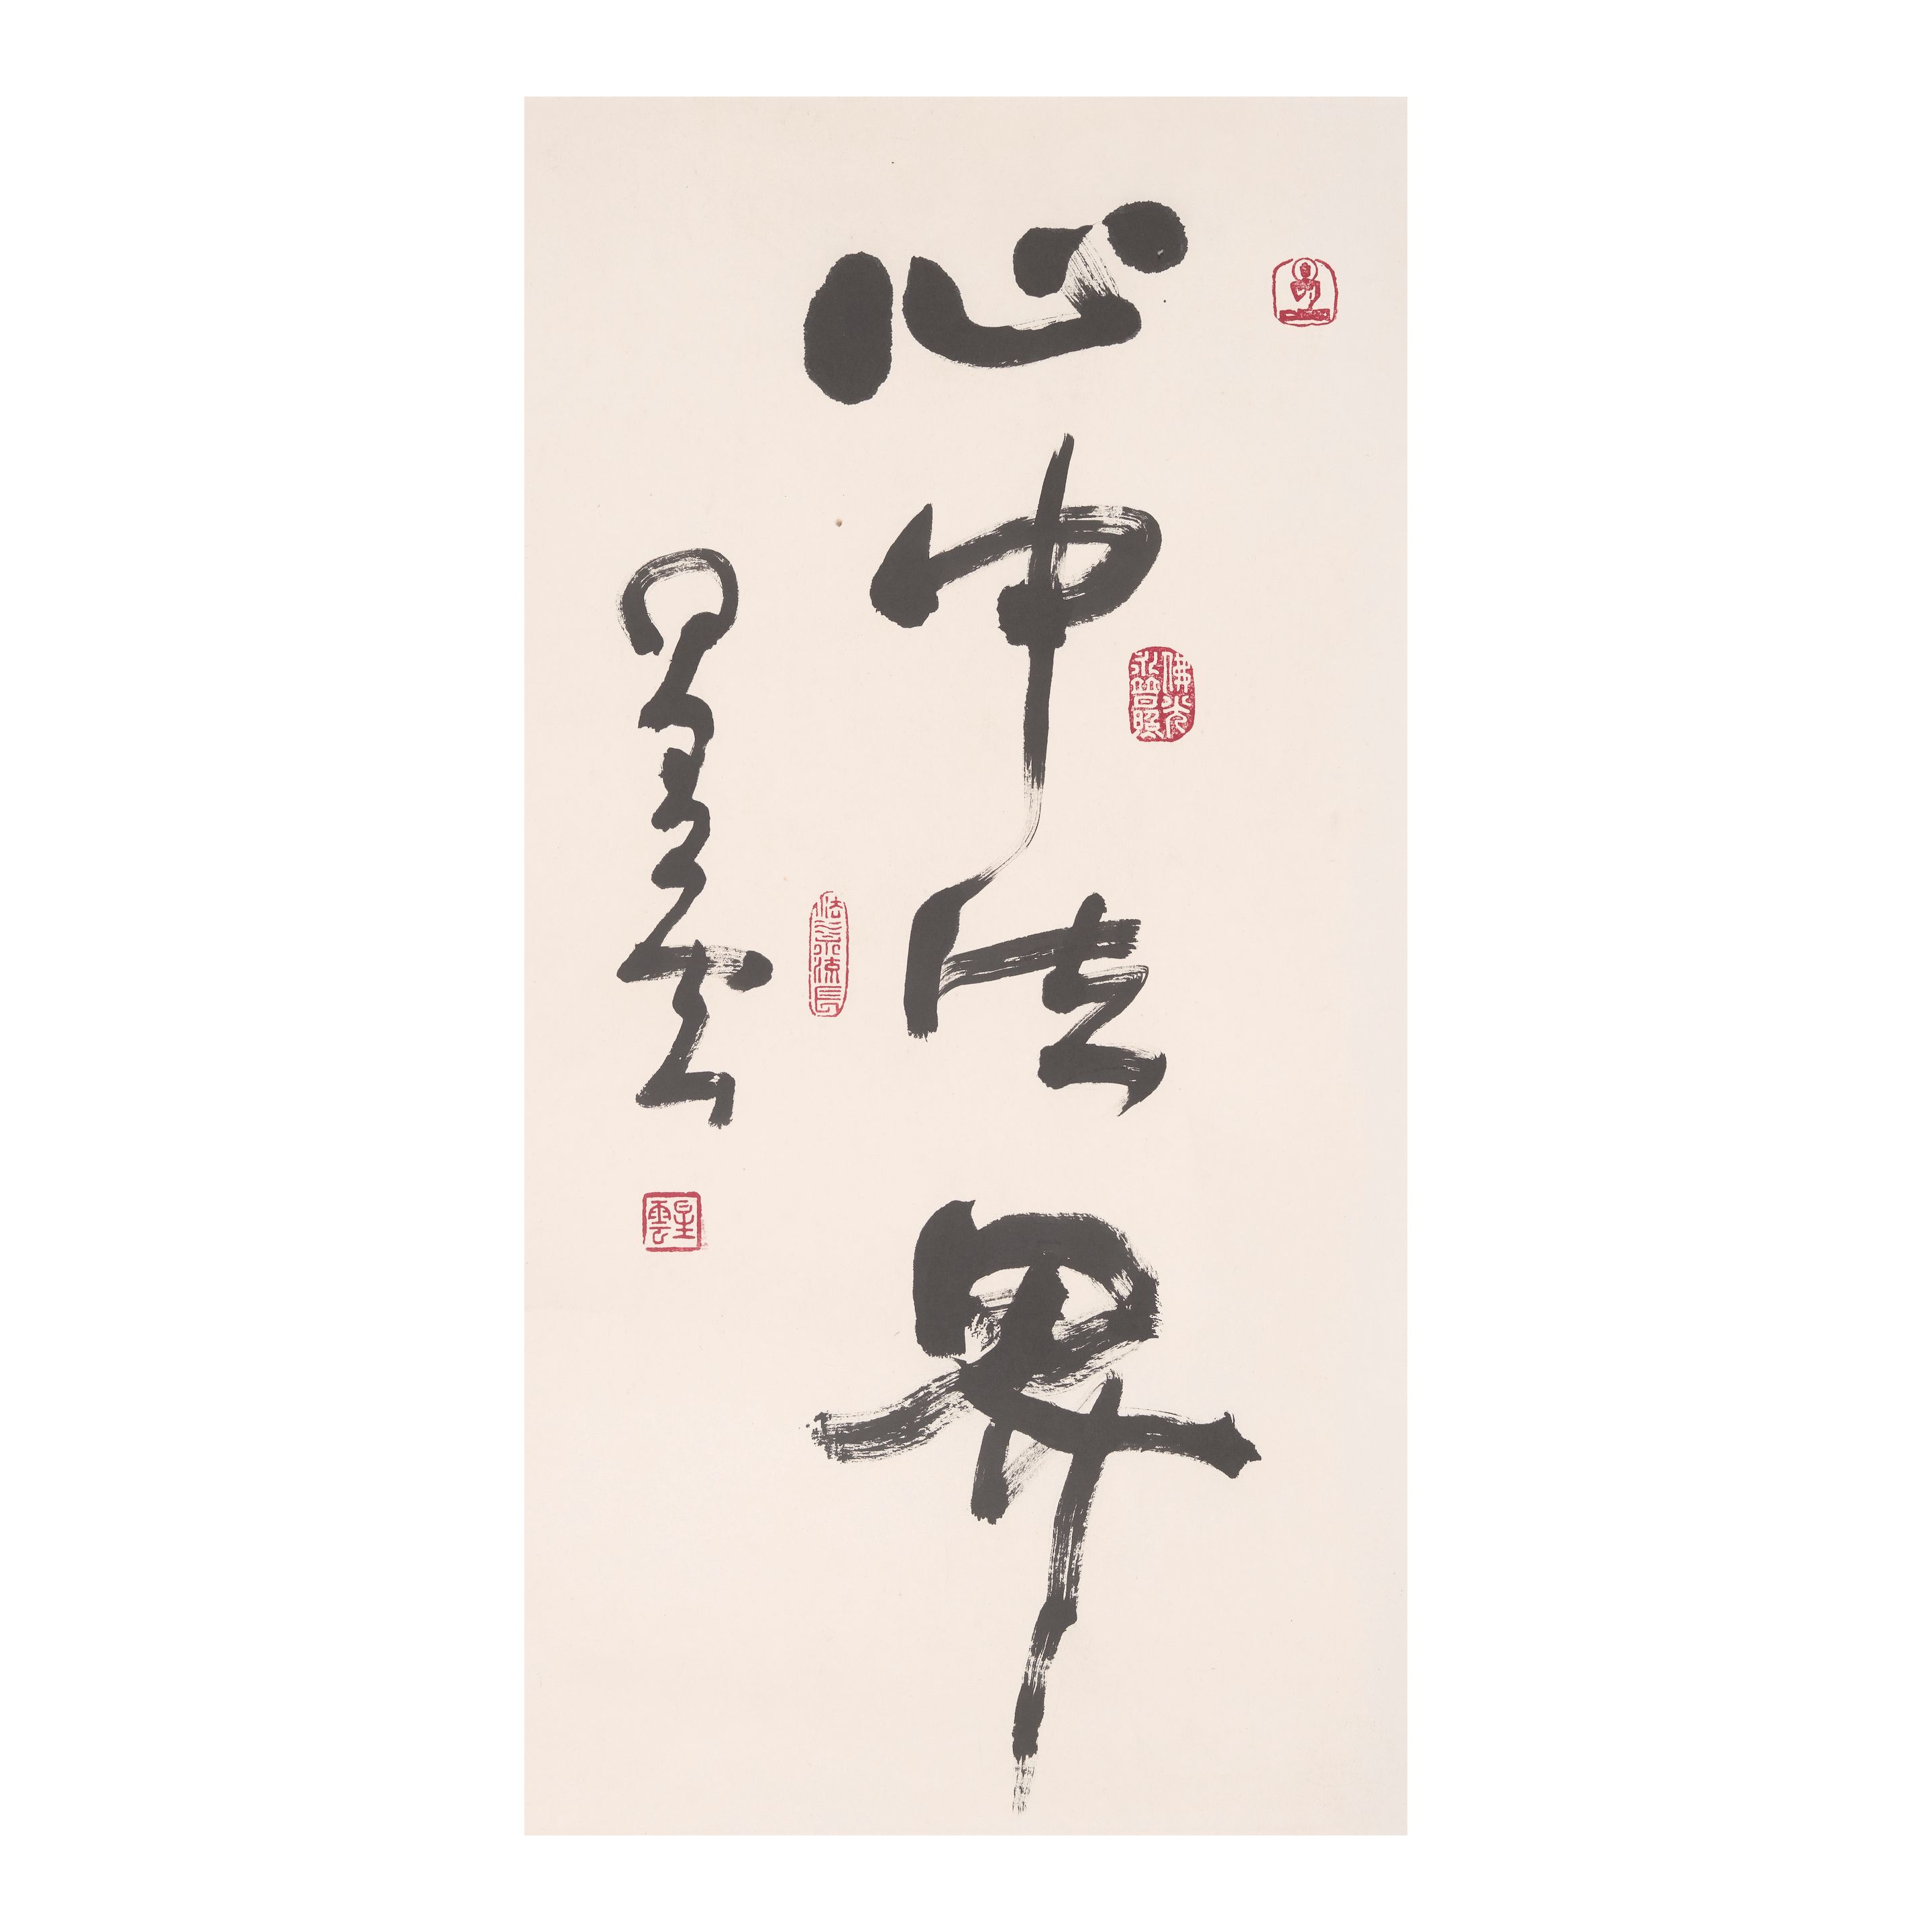 心中法界
佛光永普照
星雲
法水流長
星雲